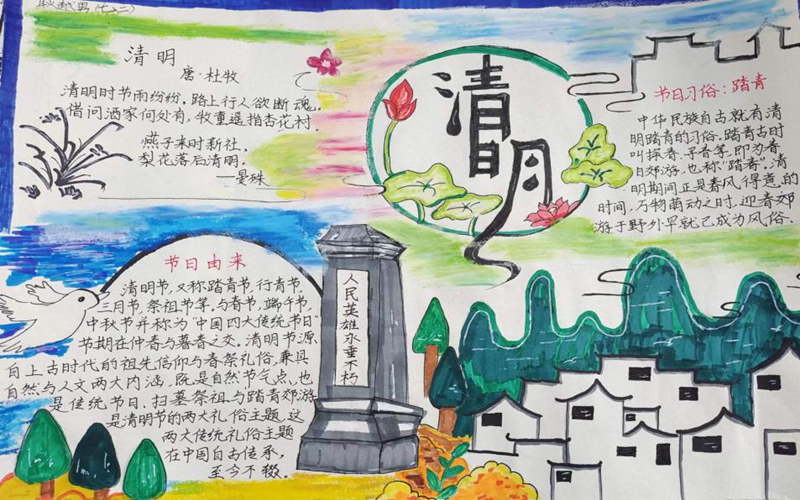 清明
唐·杜牧
清明时节雨纷纷,路上行人欲断魂,
借问酒家何处有,牧童遥指杏花村.
燕子来时新社,
梨花落后清明.
—晏殊
清明
节日习俗:踏青
中华民族自古就有清
明踏青的习俗.踏青古时
叫探春.寻春等,即为春
日郊游,也称“踏春”.清
明期间正是春风得意的
时间,万物萌动之时,迎春郊
游于野外早就已成为风俗.
节日由来
清明节,又称踏青节,行青节,
三月节.祭祖节等,与春节,端午节,
中秋节并称为“中国四大传统节日”
节期在仲春与暮春之交.清明节源
自上古时代的祖先信仰与春祭礼俗.兼具
自然与人文两大内涵,既是自然节气点,也
是传统节日,扫墓祭祖与踏青郊游
是清明节的两大礼俗主题,这
两大传统礼俗主题
在中国自古传承,
至今不辍.
人民英雄永垂不朽